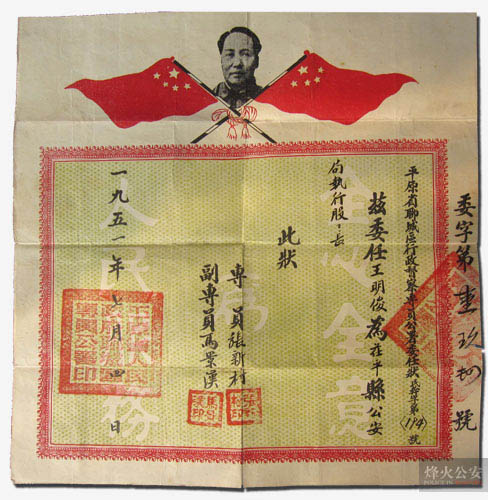 委字第壹玖號
平原省聊城區行政督察專員公署委任狀 字第(114)號
茲委任王明俊為茌平縣公安
局執行股々長
此狀
專員張新村
副專員馬景漢
一九五一年七月四日
全心全意
為
人民服務
烽火公安